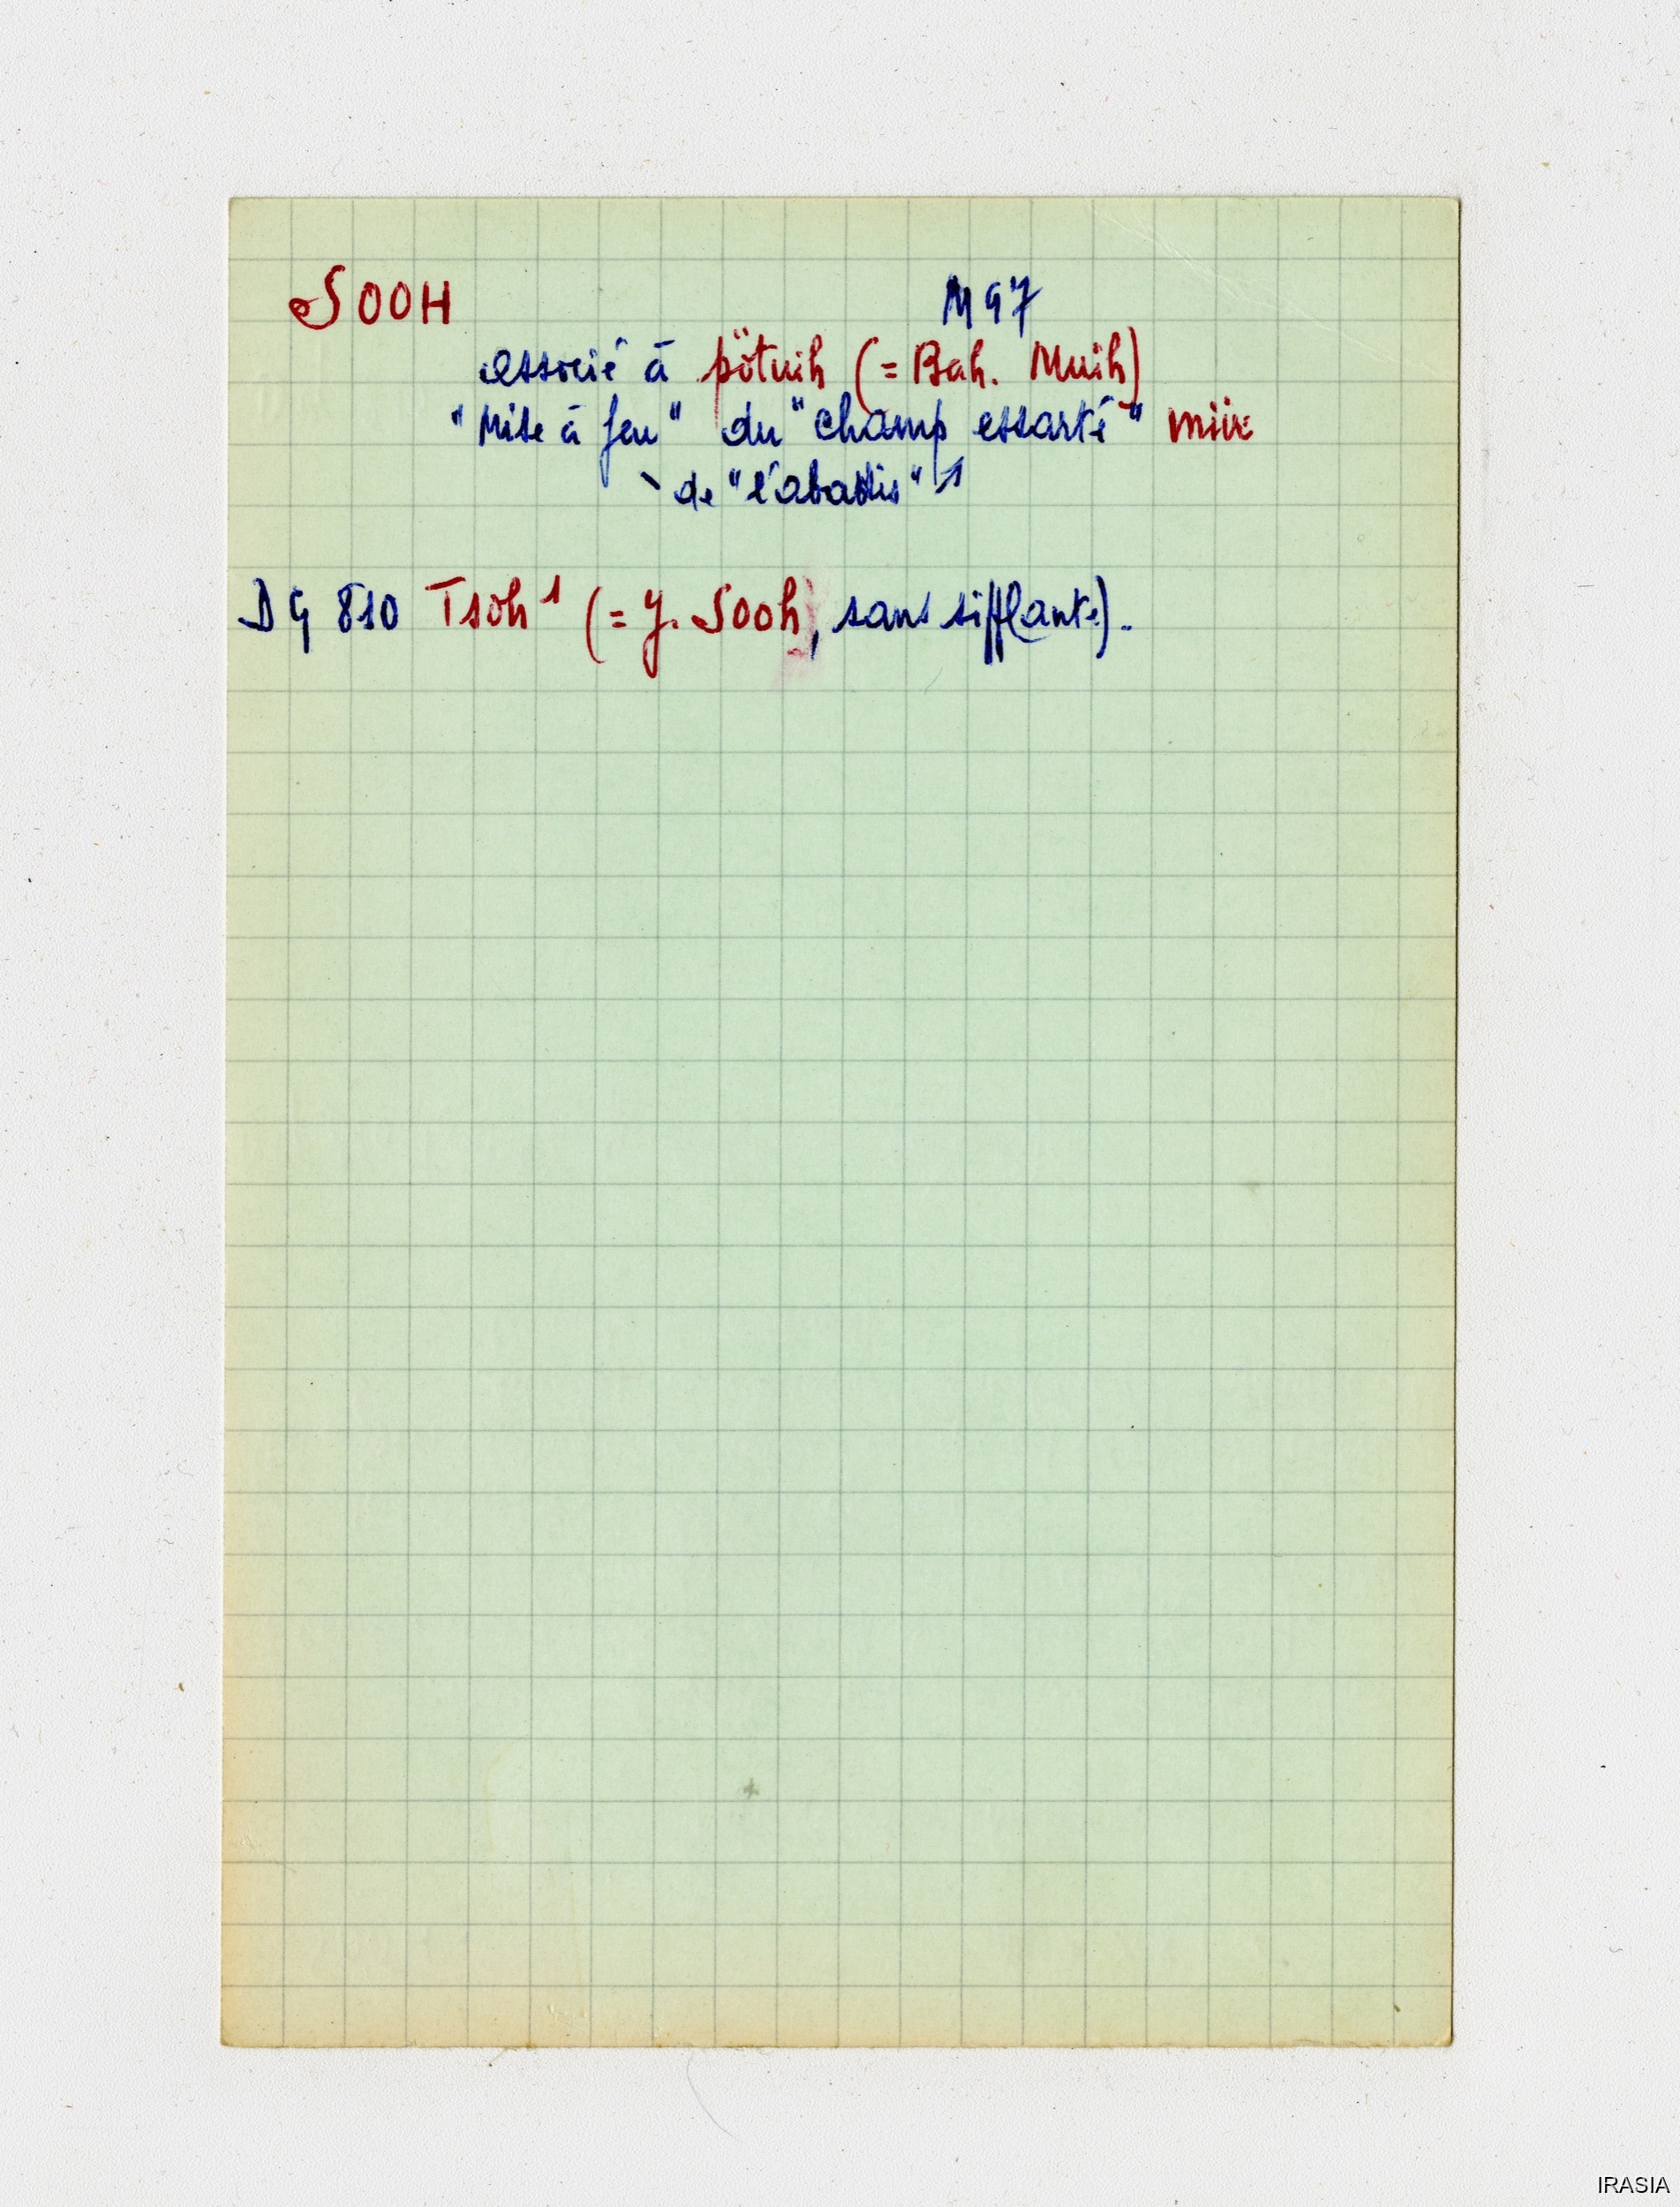 SOOH M 97
associé à pötuih (= Bah. Muih)
"Mise à feu" du "champ essarté" miir
de "l'abattis"
DG 810 Tsoh 1 (= J. Sooh, sans sifflante).
IRASIA